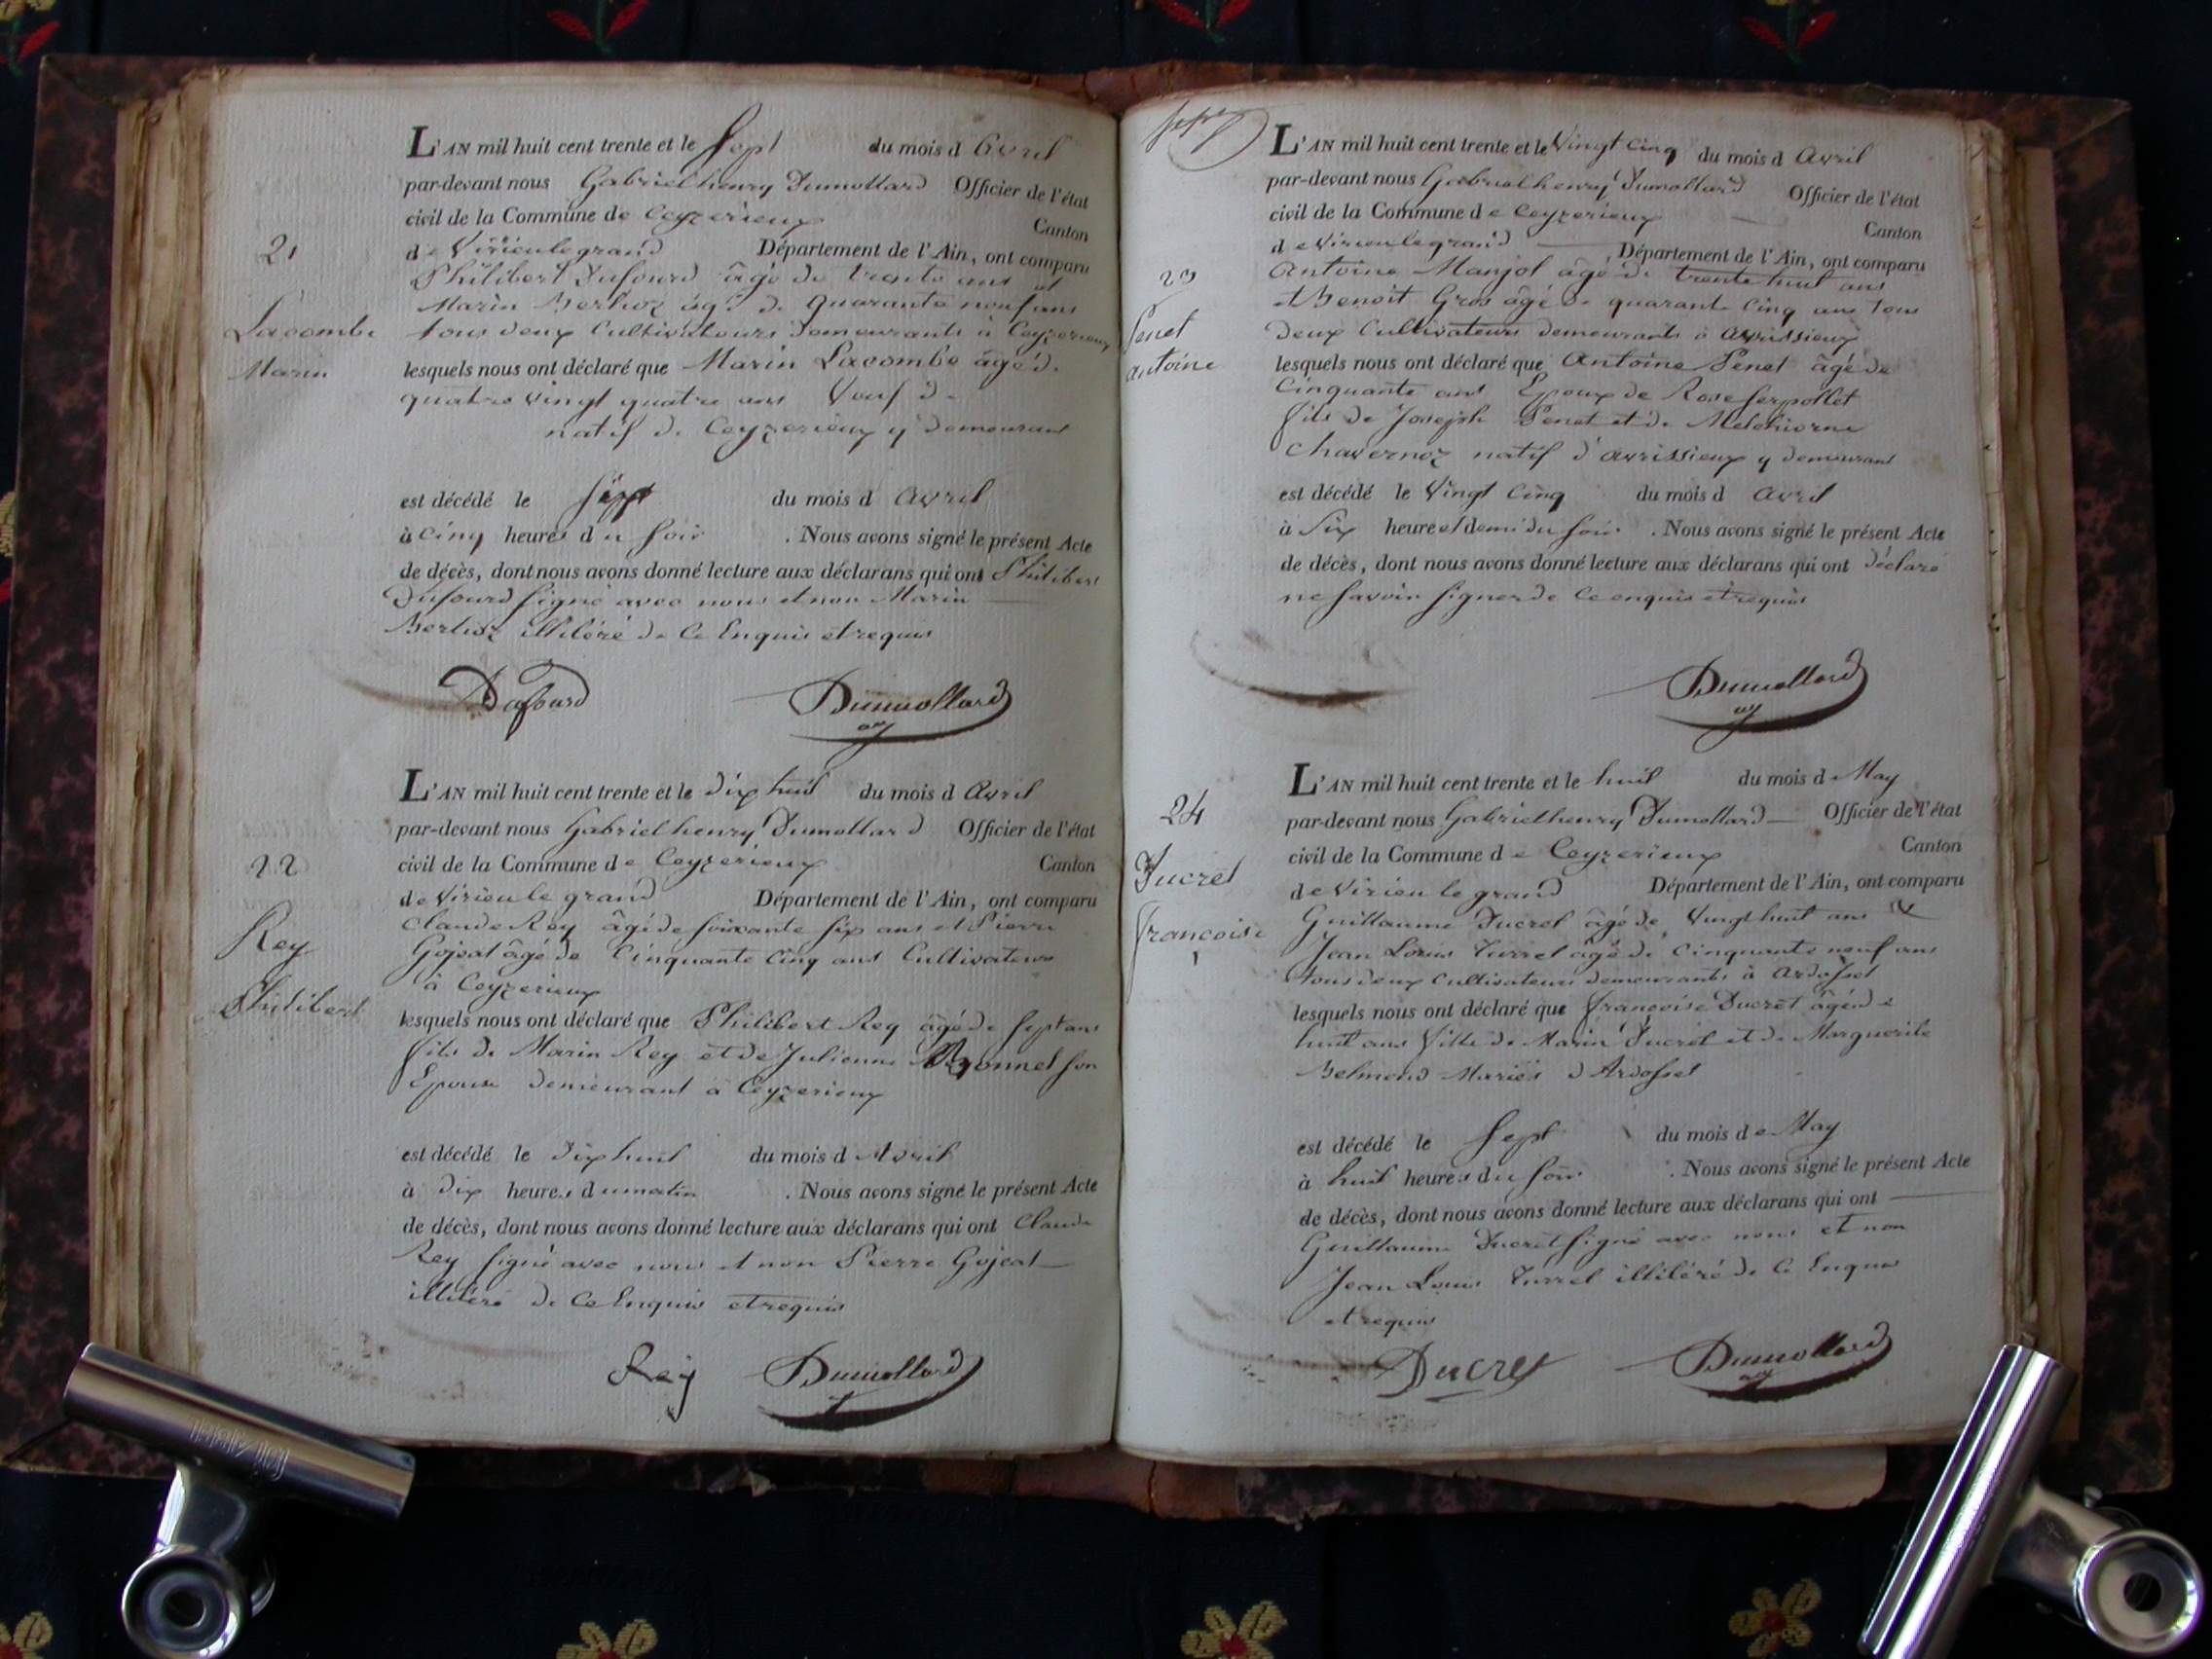 L'AN mil huit cent trente et le Sept du mois d Avril
par-devant nous Gabriel henry Dumollard Officier de l'état
civil de la Commune de Ceyzerieux Canton
de Virieu le grand Département de l'Ain, ont comparu
21
Philibert Dufourd âgé de trente ans et
Marin Berlioz âgé de quarante neuf ans
Lacombe
tous deux Cultivateurs demeurants à Ceyzerieux
Marin
lesquels nous ont déclaré que Marin Lacombe âgé de
quatre vingt quatre ans Veuf de
natif de Ceyzerieux y demeurant
est décédé le Sept du mois d Avril
à Cinq heures du Soir . Nous avons signé le présent Acte
de décès, dont nous avons donné lecture aux déclarans qui ont Philibert
Dufourd Signé avec nous et non Marin
Berlioz illitéré de Ce Enquis et requis
Dufourd Dumollard
L'AN mil huit cent trente et le dix huit du mois d Avril
par-devant nous Gabriel henry Dumollard Officier de l'état
22
civil de la Commune de Ceyzerieux Canton
de Virieu le grand Département de l'Ain, ont comparu
Claude Rey âgé de soixante six ans et Pierre
Rey
Gojeat âgé de Cinquante Cinq ans Cultivateurs
à Ceyzerieux
Philibert
lesquels nous ont déclaré que Philibert Rey âgé de Sept ans
fils de Marin Rey et de Julienne son
Epouse demeurant à Ceyzerieux
est décédé le dix huit du mois d Avril
à dix heures du matin . Nous avons signé le présent Acte
de décès, dont nous avons donné lecture aux déclarans qui ont Claude
Rey Signé avec nous et non Pierre Gojeat
illitéré de Ce Enquis et requis
Rey Dumollard
L'AN mil huit cent trente et le Vingt Cinq du mois d Avril
par-devant nous Gabriel henry Dumollard Officier de l'état
civil de la Commune de Ceyzerieux Canton
de Virieu le grand Département de l'Ain, ont comparu
23
Antoine Manjot âgé de trente huit ans
et Benoit Gros âgé de quarante Cinq ans Tous
Penet
deux Cultivateurs demeurants à Avrissieux
antoine
lesquels nous ont déclaré que Antoine Penet âgé de
Cinquante ans Epoux de Rose Serpollet
fils de Joseph Penet et de Melchiorne
Chavernoz natif d'avrissieux y demeurant
est décédé le Vingt Cinq du mois d Avril
à Six heures et demi du Soir . Nous avons signé le présent Acte
de décès, dont nous avons donné lecture aux déclarans qui ont déclaré
ne Savoir Signer de Ce enquis et requis
Dumollard
L'AN mil huit cent trente et le huit du mois de May
24
par-devant nous Gabriel henry Dumollard Officier de l'état
civil de la Commune de Ceyzerieux Canton
Ducret
de Virieu le grand Département de l'Ain, ont comparu
Guillaume Ducret âgé de Vingt huit ans &
francoise
Jean Louis Turrel âgé de Cinquante neuf ans
tous deux Cultivateurs demeurants à Ardosset
lesquels nous ont déclaré que françoise Ducret âgée de
huit ans fille de Marin Ducret et de Marguerite
Belmond Mariés d'Ardosset
est décédé le Sept du mois de May
à huit heures du Soir . Nous avons signé le présent Acte
de décès, dont nous avons donné lecture aux déclarans qui ont
Guillaume Ducret Signé avec nous et non
Jean Louis Turrel illitéré de Ce Enquis
et requis
Ducret Dumollard